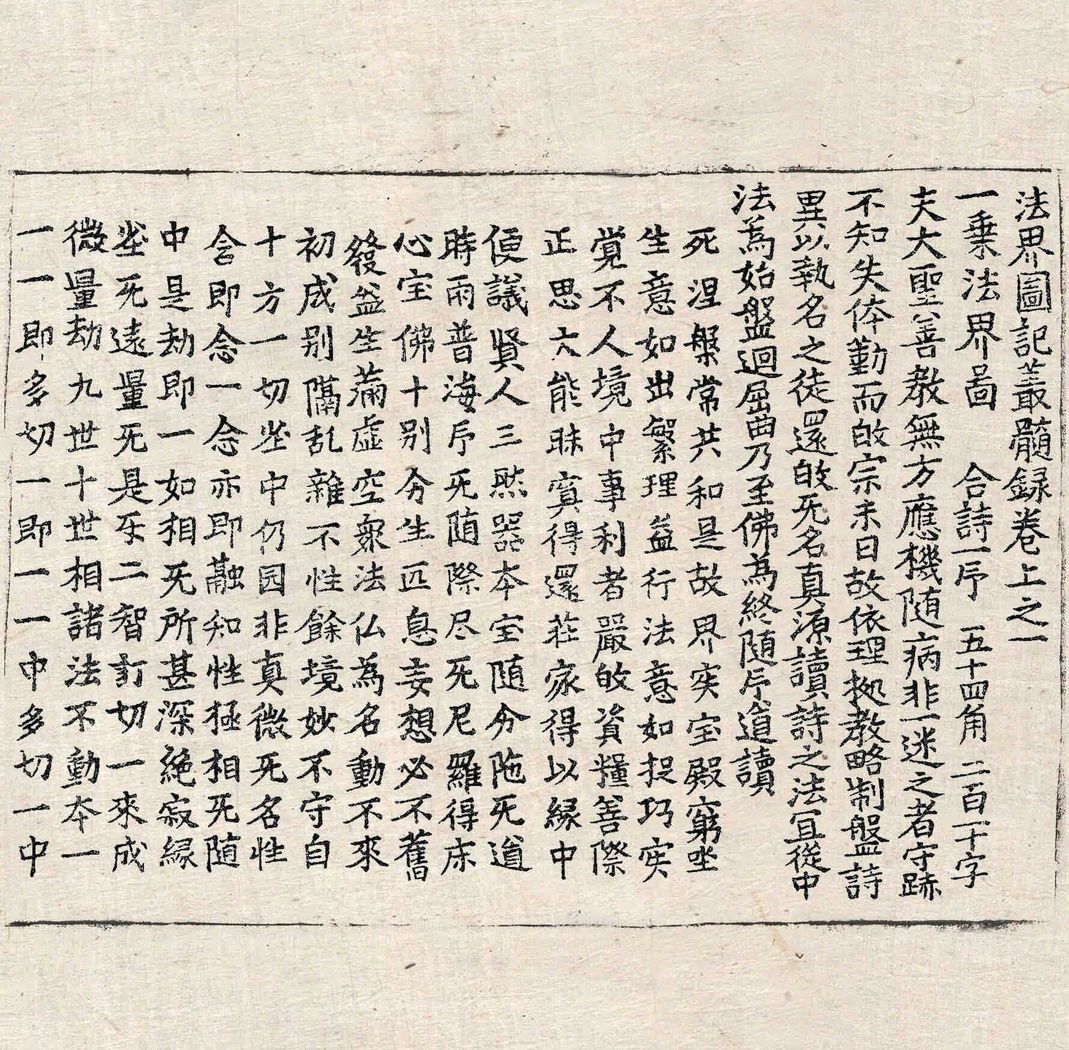 法界圖記叢髓録巻上之一
一乗法界啚 合詩一印 五十四角 二百一十字
夫大聖善教無方應機随病非一迷之者守跡
不知失体勤而皈宗未日故依理拠教略制盤詩
異以執名之徒還皈无名真源讀詩之法冝從中
法為始盤迴屈曲乃至佛為終随印道讀
死涅槃常共和是故界実宝殿窮坐
生意如出繁理益行法意如捉巧実
覺不人境中事利者嚴皈資糧善際
正思大能昧㝠得還荘家得以縁中
便議賢人三然器夲宝随分陁无道
時雨普海印无随際尽无尼羅得床
心宝佛十别分生叵息妄想必不舊
發益生满虚空衆法仏為名動不來
初成别隔乱雜不性餘境妙不守自
十方一切尘中仍园非真微无名性
含即念一念亦即融知性極相无随
中是劫即一如相无所甚深絶寂縁
尘无遠量无是互二智訂切一來成
微量劫九世十世相諸法不動夲一
一一即多切一即一一中多切一中